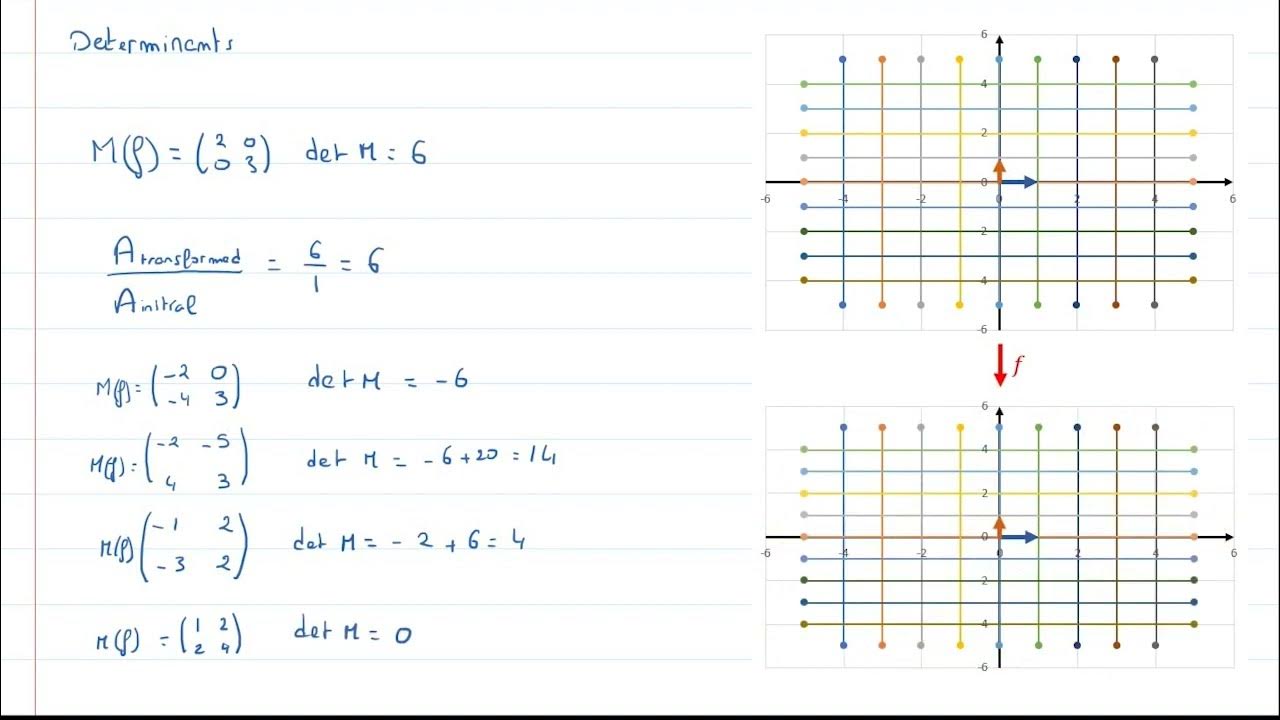 Determinants
M(f) = (2 0
0 3) det M = 6
A transformed / A initial = 6/1 = 6
M(f) = (-2 0
-4 3) det M = -6
M(f) = (-2 -5
4 3) det M = -6 + 20 = 14
M(f) (-1 2
-3 2) det M = -2 + 6 = 4
M(f) = (1 2
2 4) det M = 0
6
4
2
-6 -4 -2 0 0 2 4 6
2
-4
-6
f
6
4
2
-6 -4 -2 0 0 2 4 6
2
4
-6